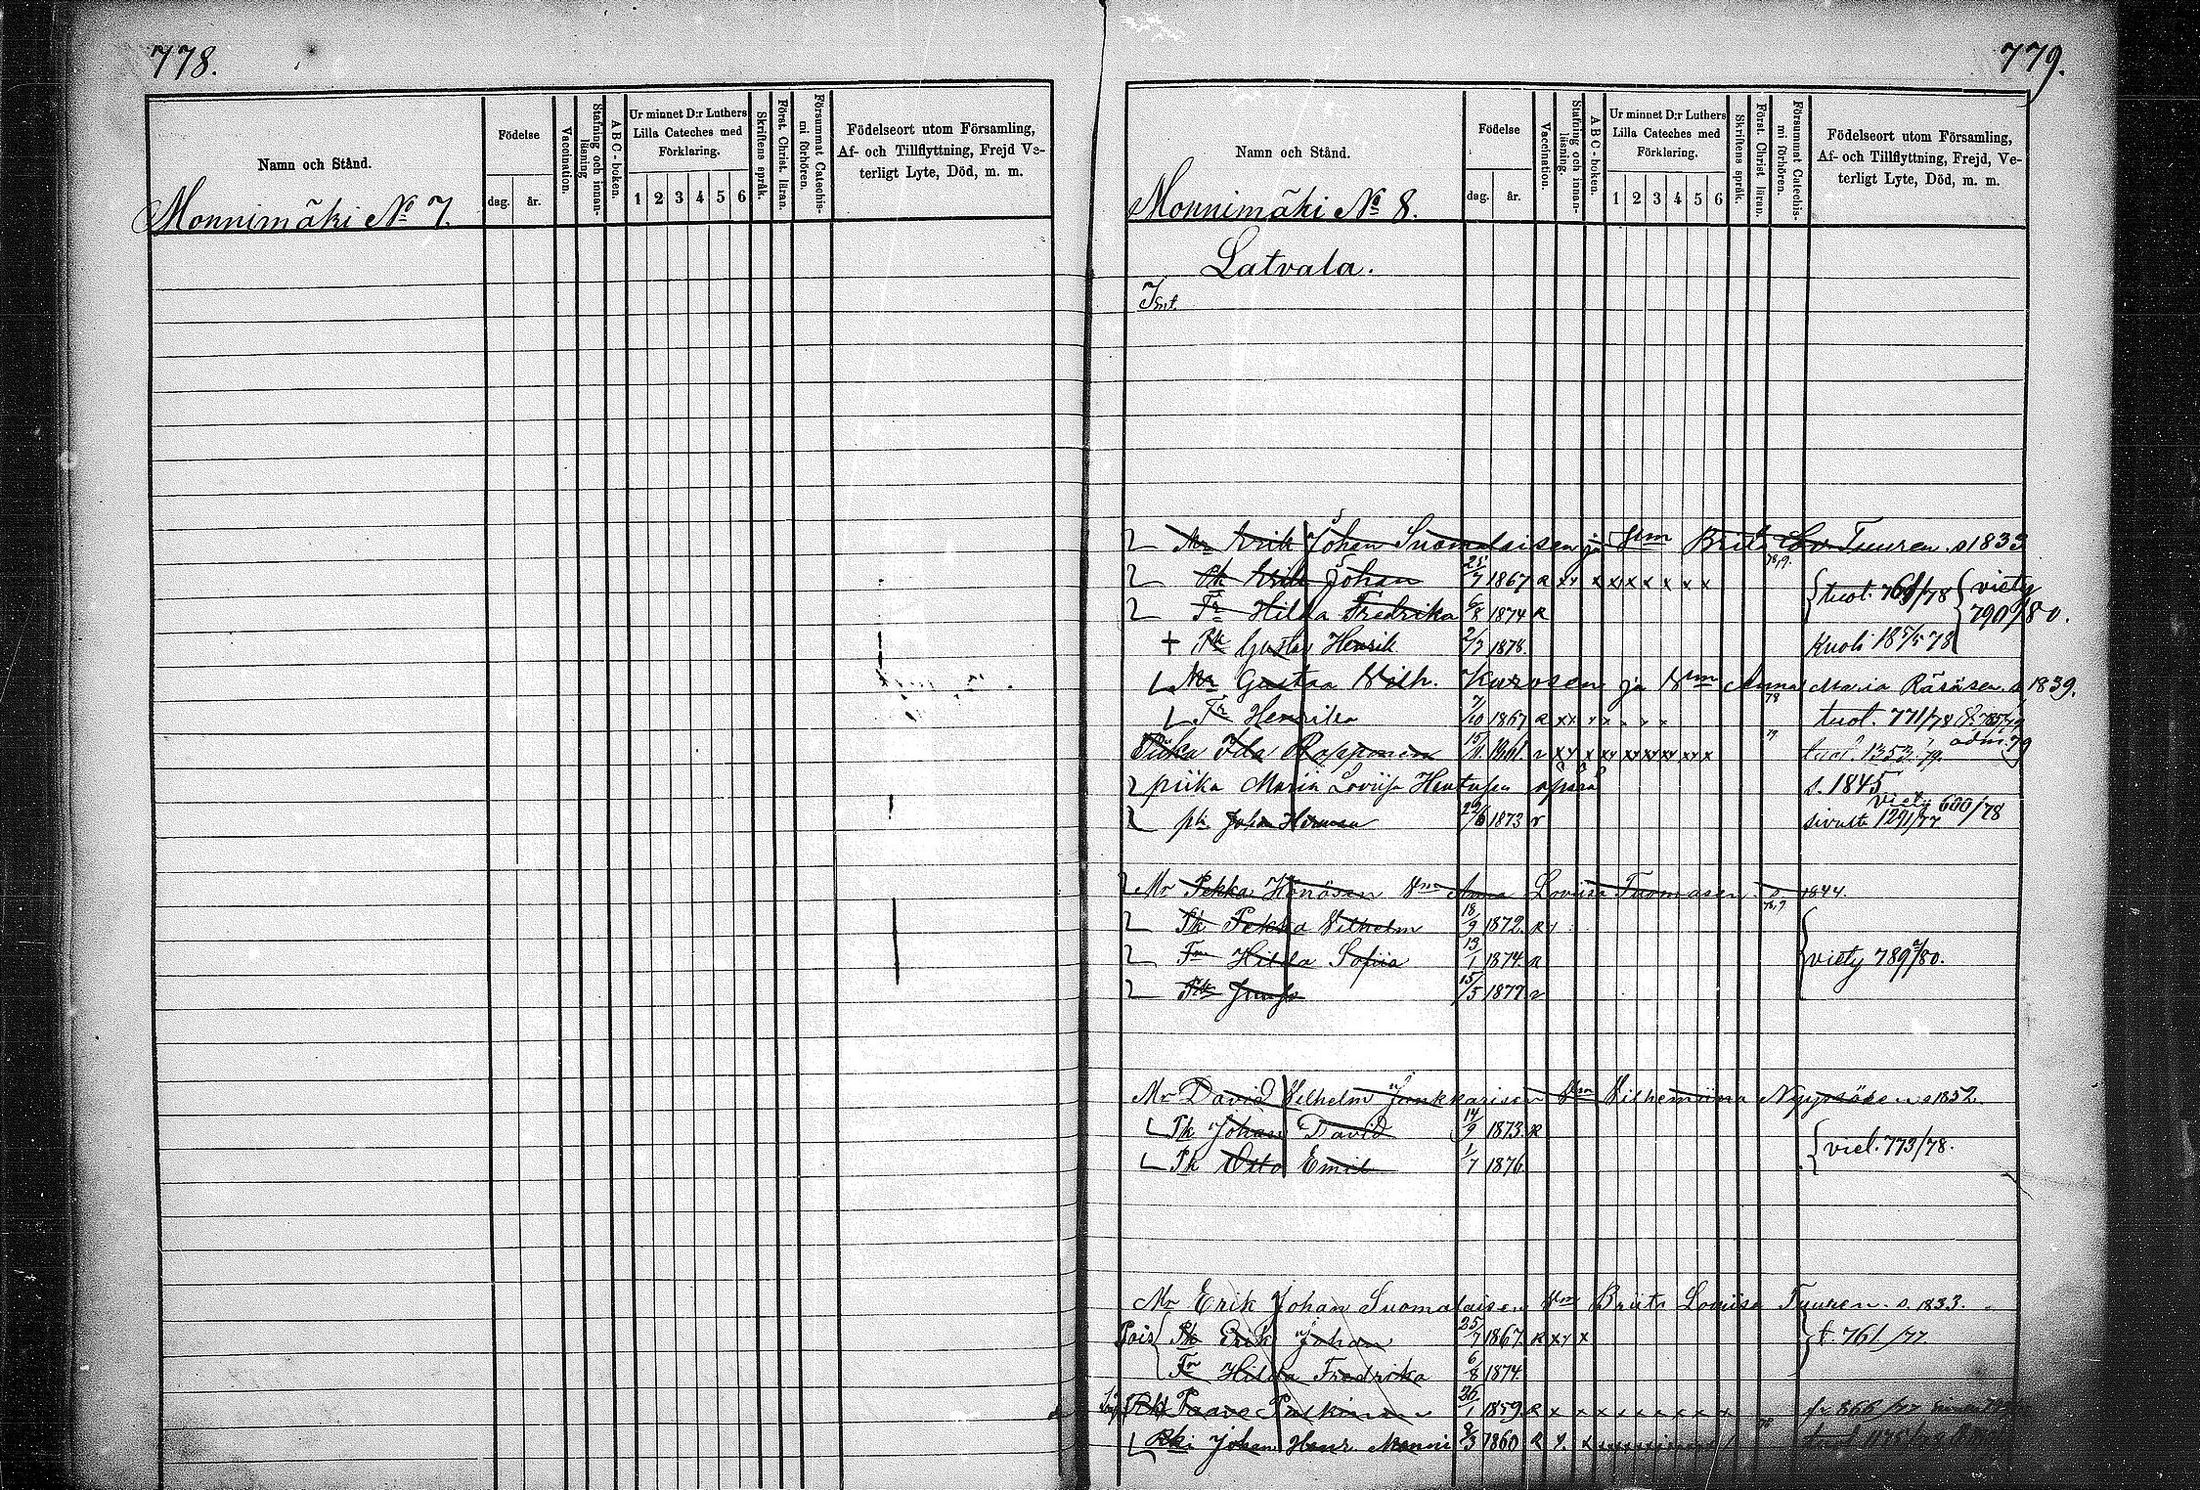 778.
Namn och Stånd.
Födelse
dag. år.
Vaccination.
Stafning och innanläsning
A B C-boken.
Ur minnet D:r Luthers Lilla Cateches med Förklaring.
1 2 3 4 5 6
Skriftens språk.
Först. Christ. läran.
Försummat Catechismi förhören.
Födelseort utom Församling,
Af- och Tillflyttning, Frejd Ve-
terligt Lyte, Död, m. m.
Monnimäki No 7.
779.
Namn och Stånd.
Födelse
dag. år.
Vaccination.
Stafning och innanläsning.
A B C-boken.
Ur minnet D:r Luthers Lilla Cateches med Förklaring.
1 2 3 4 5 6
Skriftens språk.
Först. Christ. läran.
Försummat Catechismi förhören.
Födelseort utom Församling,
Af- och Tillflyttning, Frejd, Ve-
terligt Lyte, Död, m. m.
Monnimäki No 8.
Latvala.
Mr Erik Johan Suomalaisen ja Vm Brita Tuuren s 1833
Pk Erik Johan 25/7 1867 R xx x x x x x x x
Tr Hilda Fredrika 6/8 1874 R tuot. 761/78 viety 790/80.
+ Pk Gustav Henrik 2/3 1878. Kuoli 18 5/5 78
Mr Gustaa Vilh. Karosen ja Vm Anna Maria Räsäsen s 1839.
Tr Henrika 7/10 1867 R xx tuot. 771/78
Piika Ida Ropponen 15/11 1861. tuot 1353/79.
piika Maria Loviisa Hentusen äpärä s. 1845
pk Johan Herman 29/6 1873 r sivulta 1291/77 viety 600/78
Mr Pekka Hänösen Vm Anna Lovisa Tuomasen s. 1844.
Pk Pekka Vilhelm 18/9 1872. R
Tr Hilda Sofiia 13/1 1874. R viety 789/80.
Pk Juuso 15/5 1877 r
Mr David Vilhelm Jankkarisen Vm Vilhemiina Nyyssösen s 1852.
Pk Johan David 14/9 1873. R
Pk Otto Emil 1/7 1876 viet. 773/78.
Mr Erik Johan Suomalaisen Vm Briita Lovisa Tuuren. s. 1833.
Pois Pk Erik Johan 25/7 1867. R xx x t. 761/77
Tr Hilda Fredrika 6/8 1874.
Paavo Pulkinen 26/1 1859. R x x x x x x x x 866/77
Rki Johan Henr. Monni 9/3 1860 R